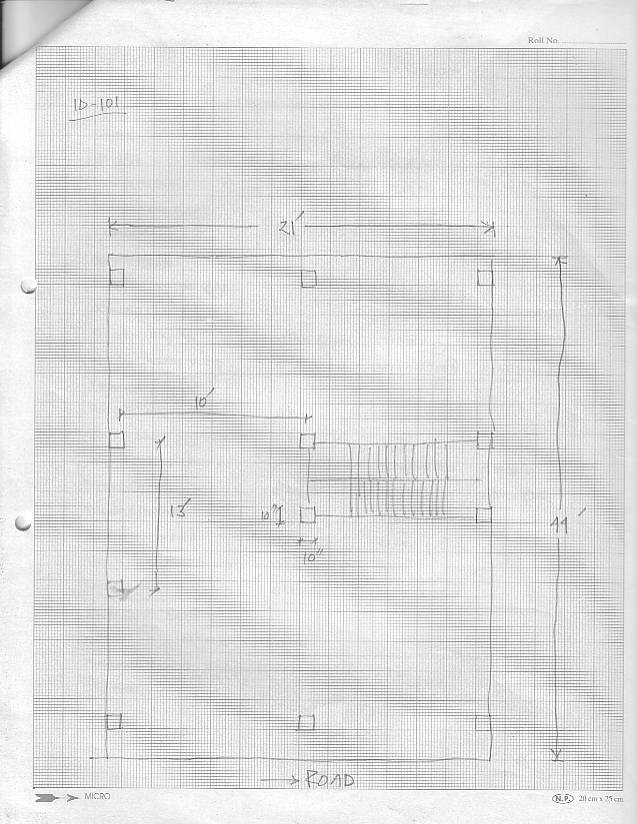 Roll No.
ID-101
21'
10'
13'
10"
10"
44'
ROAD
MICRO
N.P. 20 cm x 25 cm